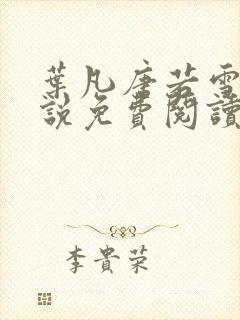 葉凡唐若雪
說免費閱讀
李貴榮